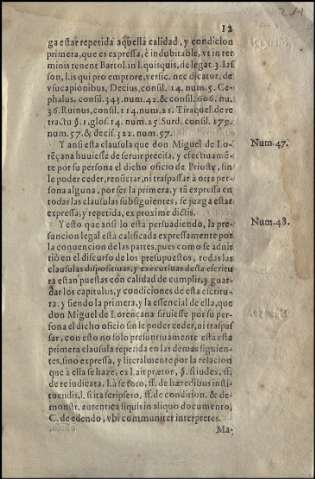 12
ga estar repetida aquella calidad, y condicion
primera, que es expressa, è indubitable, vt in ter
minis tenent Bartol. in l. quisquis, de legat. 3. Ias
son, l. is qui pro emptore, versic. nec dicatur, de
vsucapionibus, Decius, consil. 14. num. 5. Ce-
phalus, consil. 343. num. 42. & consil. 606. nu.
36. Ruinus, consil. 114. num. 21. Tiraquel. de re
tractu §. 1. glos. 14. num. 25. Surd. consil. 279.
num. 57. & decis. 322. num. 57.
Y ansi esta clausula que don Miguel de Lo-
rẽçana huuiesse de seruir precita, y efectuamẽ-
te por su persona el dicho oficio de Prioste, sin
le poder ceder, renũciar, ni traspassar a otra per-
sona alguna, por ser la primera, y tã expressa en
todas las clausulas subsiguientes, se juzga estar
expressa, y repetida, ex proxime dictis.
Num. 47.
Y esto que ansi lo està persuadiendo, la pre-
suncion legal està calificada expressamente por
la conuencion de las partes, pues como se adui-
tiò en el discurso de los presupuestos, todas las
clausulas dispositiuas, y executiuas desta escritu
ra estan puestas con calidad de cumplir, y guar-
dar los capitulos, y condiciones de esta escritu-
ra, y siendo la primera, y la essencial de ella, que
don Miguel de Lorençana siruiesse por su per-
sona el dicho oficio sin le poder ceder, ni traspas-
sar, con esto no solo presuntiuamente està esta
primera clausula repetida en las demàs siguien-
tes, sino expressa, y literalmente por la relacion
que à ella se haze, ex l. ait prætor, §. si iudex, ff.
de re iudicata, l. à se toto, ff. de hæredibus insti-
tuendis, l. si ita scripsero, ff. de condition. & de-
monstr. autentica si quis in aliquo documento,
C. de edendo, vbi communiter interpretes.
Num. 48.
Ma-